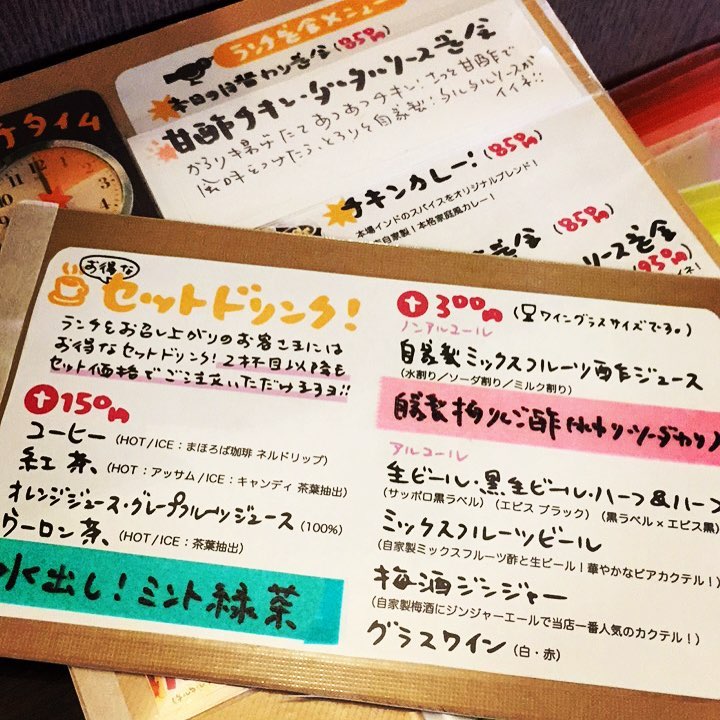 ランチ定食メニュー
本日の日替わり定食(850円)
甘酢チキン・タルタルソース定食
からり揚げたてあつあつチキン!さっと甘酢で
風味をつけたら、とろりと自家製!タルタルソースが
イイネ!!
チキンカレー!(850円)
本場インドのスパイスをオリジナルブレンド!
自家製!本格家庭風カレー!
定食(850円)
ソース定食
(950円)
タイム
12
11
10
9
お得な
セットドリンク!
ランチをお召し上がりのお客さまには
お得なセットドリンク!2杯目以降も
セット価格でご注文いただけますヨ!!
+150円
コーヒー(HOT/ICE:まほろば珈琲 ネルドリップ)
紅茶、(HOT:アッサム/ICE:キャンディ 茶葉抽出)
オレンジジュース・グレープフルーツジュース(100%)
ウーロン茶、(HOT/ICE:茶葉抽出)
水出し!ミント緑茶
+300円(ワイングラスサイズです。)
ノンアルコール
自家製ミックスフルーツ酢ジュース
(水割り/ソーダ割り/ミルク割り)
自家製梅りんご酢(水わり・ソーダわり)
アルコール
生ビール・黒生ビール・ハーフ&ハーフ
(サッポロ黒ラベル)(エビス ブラック)(黒ラベル×エビス黒)
ミックスフルーツビール
(自家製ミックスフルーツ酢と生ビール!華やかなビアカクテル!)
梅酒ジンジャー
(自家製梅酒にジンジャーエールで当店一番人気のカクテル!)
グラスワイン(白・赤)